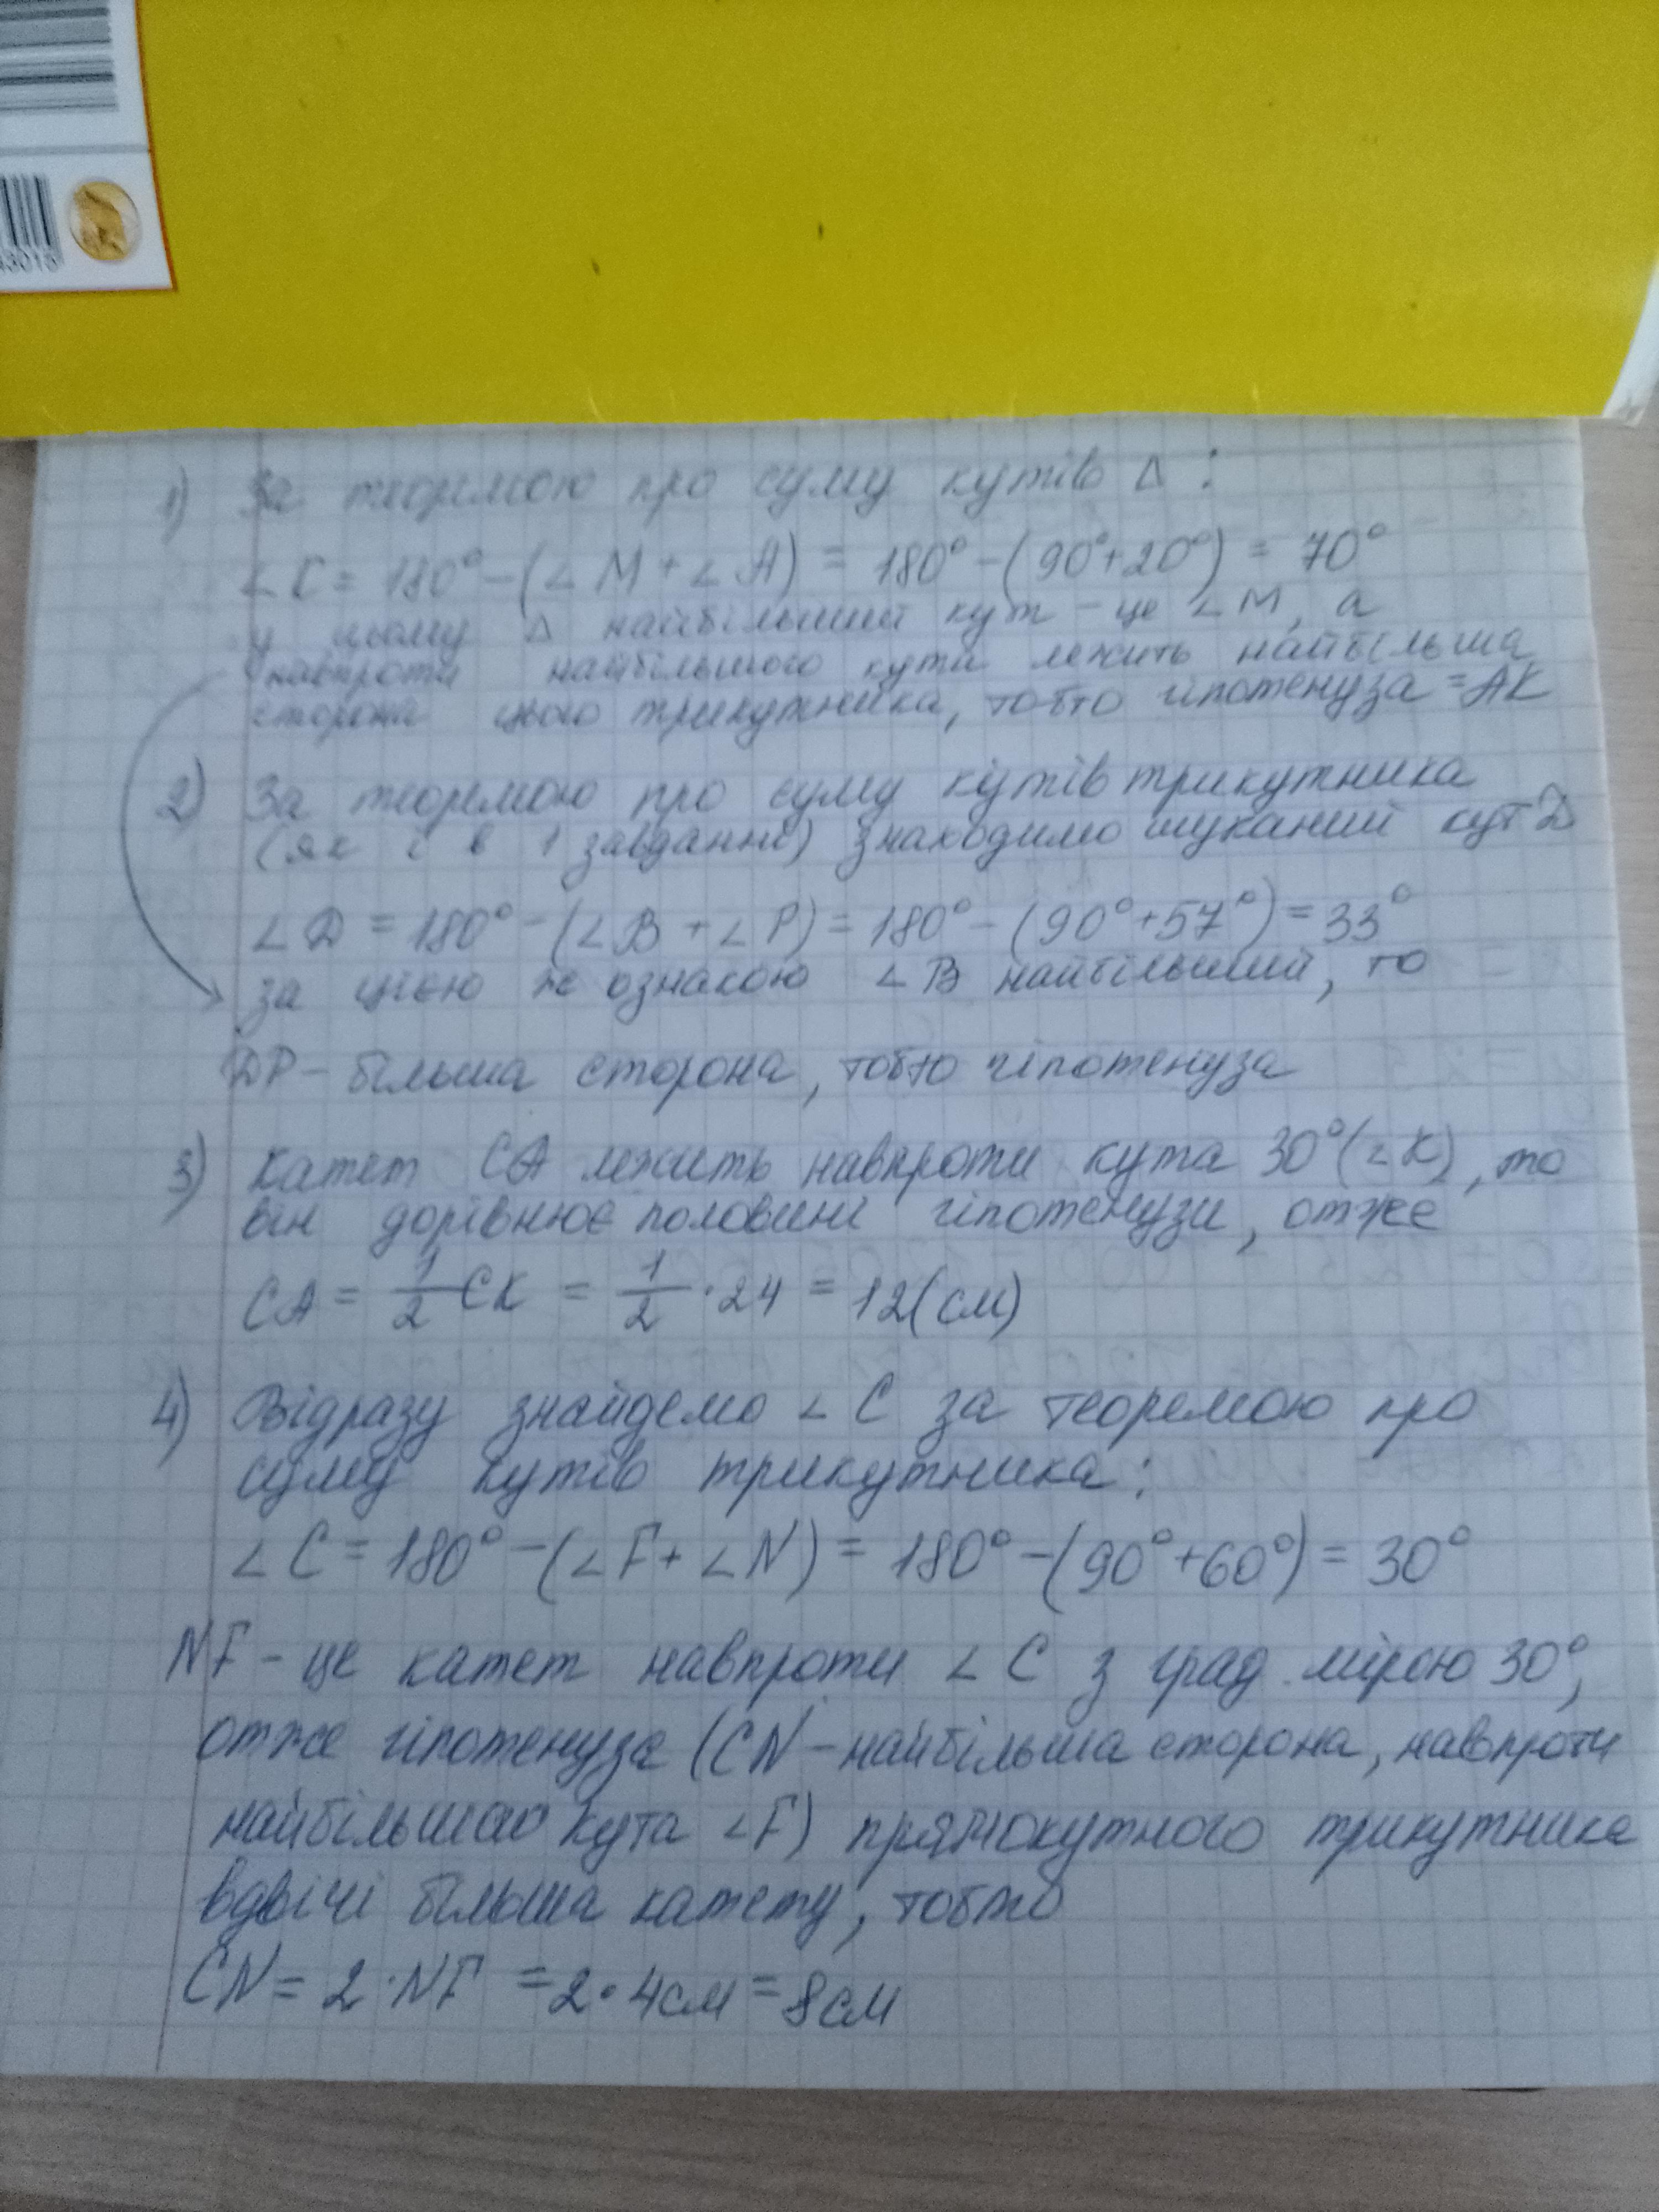 43015
1) За теоремою про суму кутів Δ:
∠К = 180° - (∠M + ∠A) = 180° - (90°+20°) = 70°
у цьому Δ найбільший кут - це ∠M, а
навпроти найбільшого кута лежить найбільша
сторона цього трикутника, тобто гіпотенуза = AK
2) За теоремою про суму кутів трикутника
(як і в 1 завданні) знаходимо шуканий кут D
∠D = 180° - (∠B + ∠P) = 180° - (90°+57°) = 33°
за цією ж ознакою ∠B найбільший, то
DP - більша сторона, тобто гіпотенуза
3) Катет CA лежить навпроти кута 30° (∠K), то
він дорівнює половині гіпотенузи, отже
CA = 1/2 CK = 1/2 · 24 = 12 (см)
4) Відразу знайдемо ∠C за теоремою про
суму кутів трикутника:
∠C = 180° - (∠F + ∠N) = 180° - (90° + 60°) = 30°
NF - це катет навпроти ∠C з град. мірою 30°,
отже гіпотенуза (CN - найбільша сторона, навпроти
найбільшого кута ∠F) прямокутного трикутника
вдвічі більша катету, тобто
CN = 2 · NF = 2 · 4см = 8см